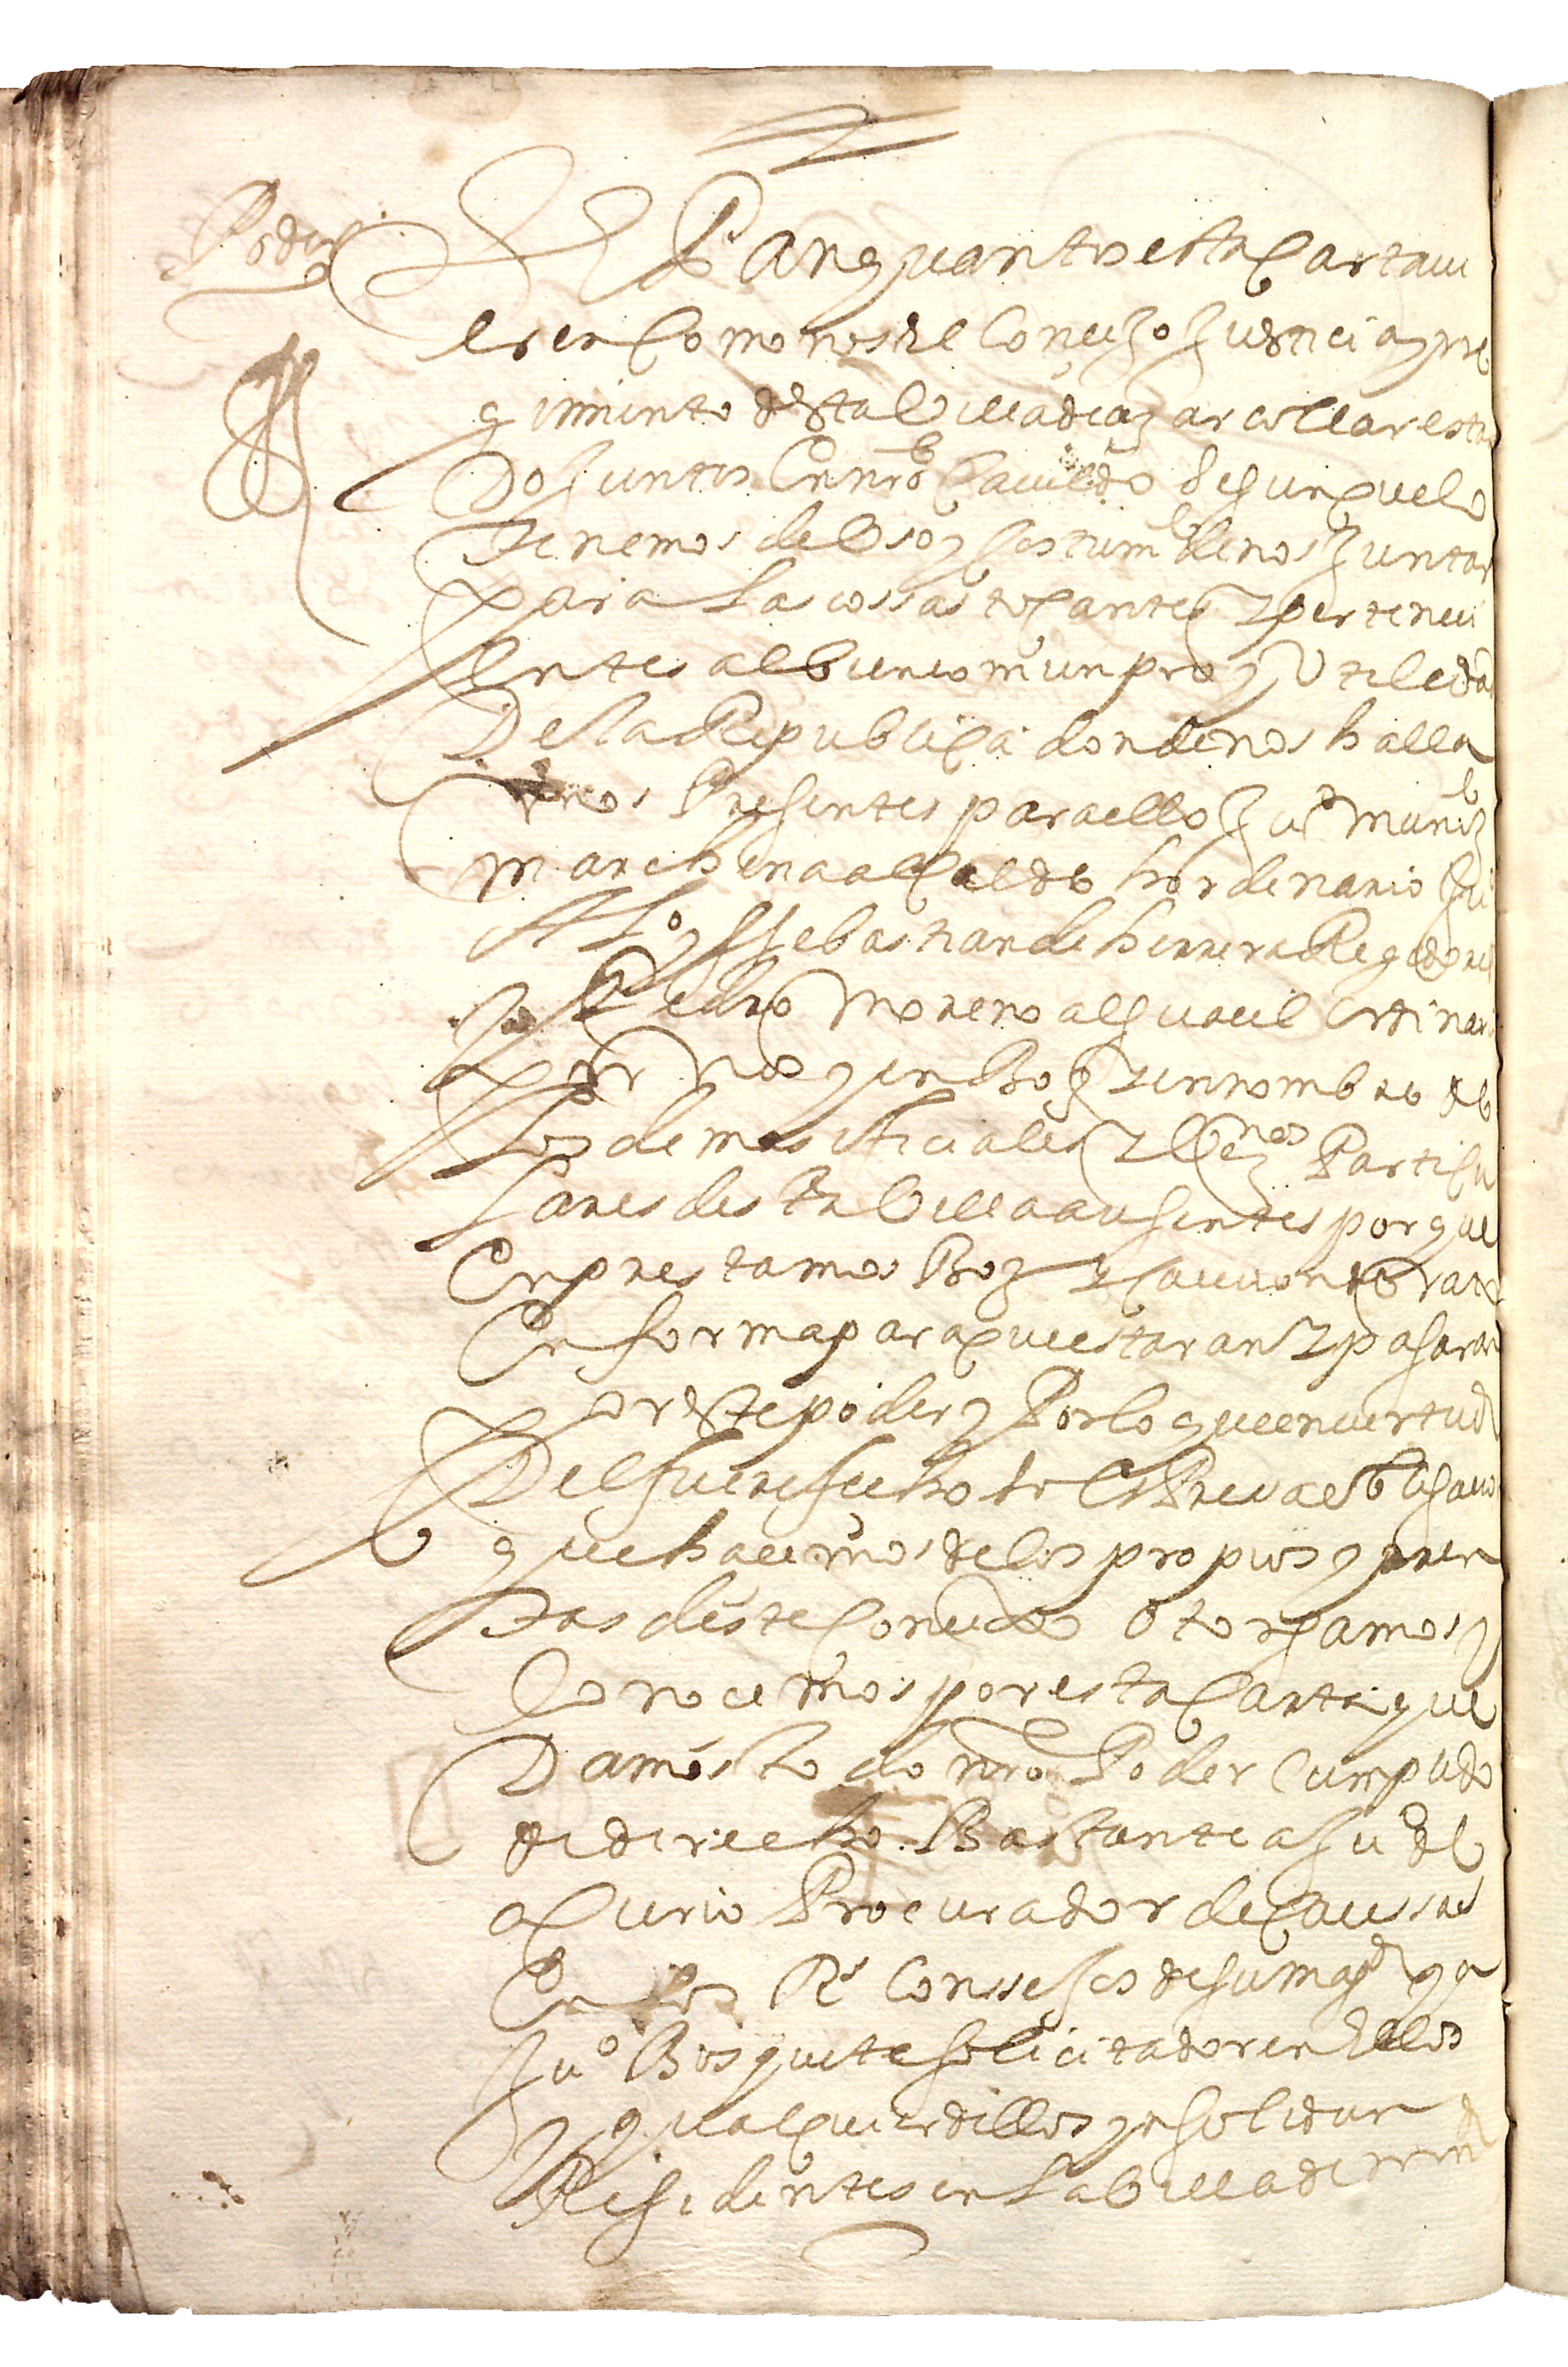 Poder
Sepan quantos esta Carta vi
eren Como nos el Concejo Justicia y rre
gimiento desta Villa de aznarcollar estan
do Juntos En nro Cavildo Segun que lo
tenemos de Uso y Costumbre de nos Juntar
para las cossas tocantes y perteneci
entes al buen comun pro y Utiledad
Desta Republica donde nos halla
mos Presentes para ello Juo muniz
marchena alcalde hordenario Juo
Alo y Sebastian de herrera Regidores
Pedro Moreno alguacil Ordinario
por nos y en Boz y en nombre de
los demas oficiales y Vezos Particu
lares desta Villa ausentes por quien
Enprestamos Boz y Caucion de rato
En forma para que estaran y pasaran
por este poder y Por lo que en virtud
Del fuere fecho so Espresa obligacion
que hacemos de los propios y rren
tas deste Concejo otorgamos y
Conocemos por esta Carta que
Damos todo nro Poder Cumplido
de derecho Bastante a Juo del
acurio Procurador de Caussas
En los Rs Conssejos de su magd y a
Juo Bosquete solicitador en ellos
y qualquier dellos ynsolidun
Residentes en la Villa de